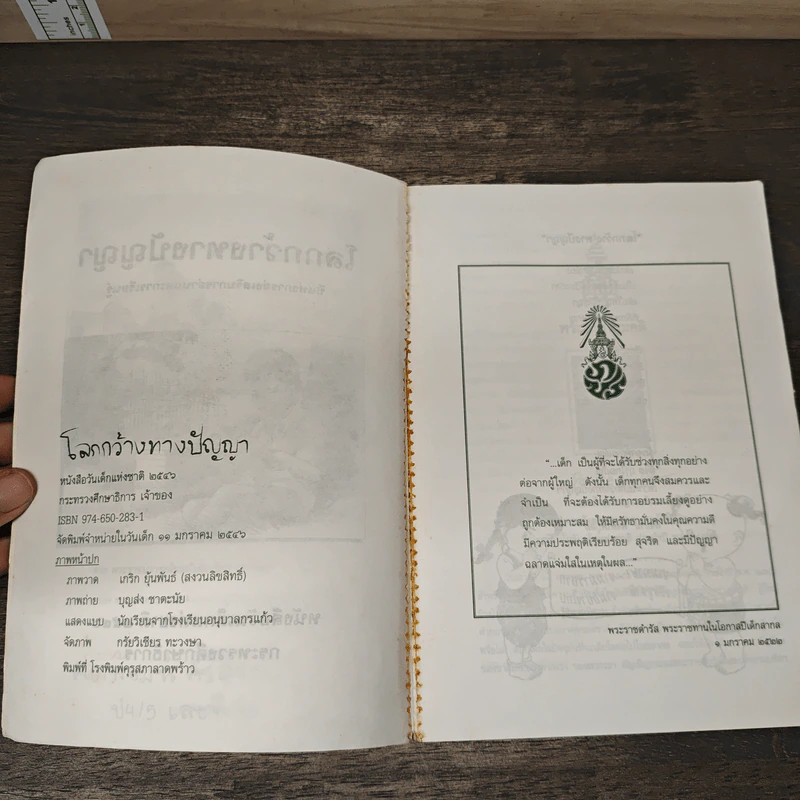 โลกกว้างทางปัญญา
หนังสือวันเด็กแห่งชาติ ๒๕๔๖
กระทรวงศึกษาธิการ เจ้าของ
ISBN 974-650-283-1
จัดพิมพ์จำหน่ายในวันเด็ก ๑๑ มกราคม ๒๕๔๖
ภาพหน้าปก
ภาพวาด เกริก ยุ้นพันธ์ (สงวนลิขสิทธิ์)
ภาพถ่าย บุญส่ง ชาตะนัย
แสดงแบบ นักเรียนจากโรงเรียนอนุบาลกรแก้ว
จัดภาพ กรัยวิเชียร ทะวงษา
พิมพ์ที่ โรงพิมพ์คุรุสภาลาดพร้าว
"...เด็ก เป็นผู้ที่จะได้รับช่วงทุกสิ่งทุกอย่าง
ต่อจากผู้ใหญ่ ดังนั้น เด็กทุกคนจึงสมควรและ
จำเป็น ที่จะต้องได้รับการอบรมเลี้ยงดูอย่าง
ถูกต้องเหมาะสม ให้มีศรัทธามั่นคงในคุณความดี
มีความประพฤติเรียบร้อย สุจริต และมีปัญญา
ฉลาดแจ่มใสในเหตุในผล..."
พระราชดำรัส พระราชทานในโอกาสปีเด็กสากล
๑ มกราคม ๒๕๒๒